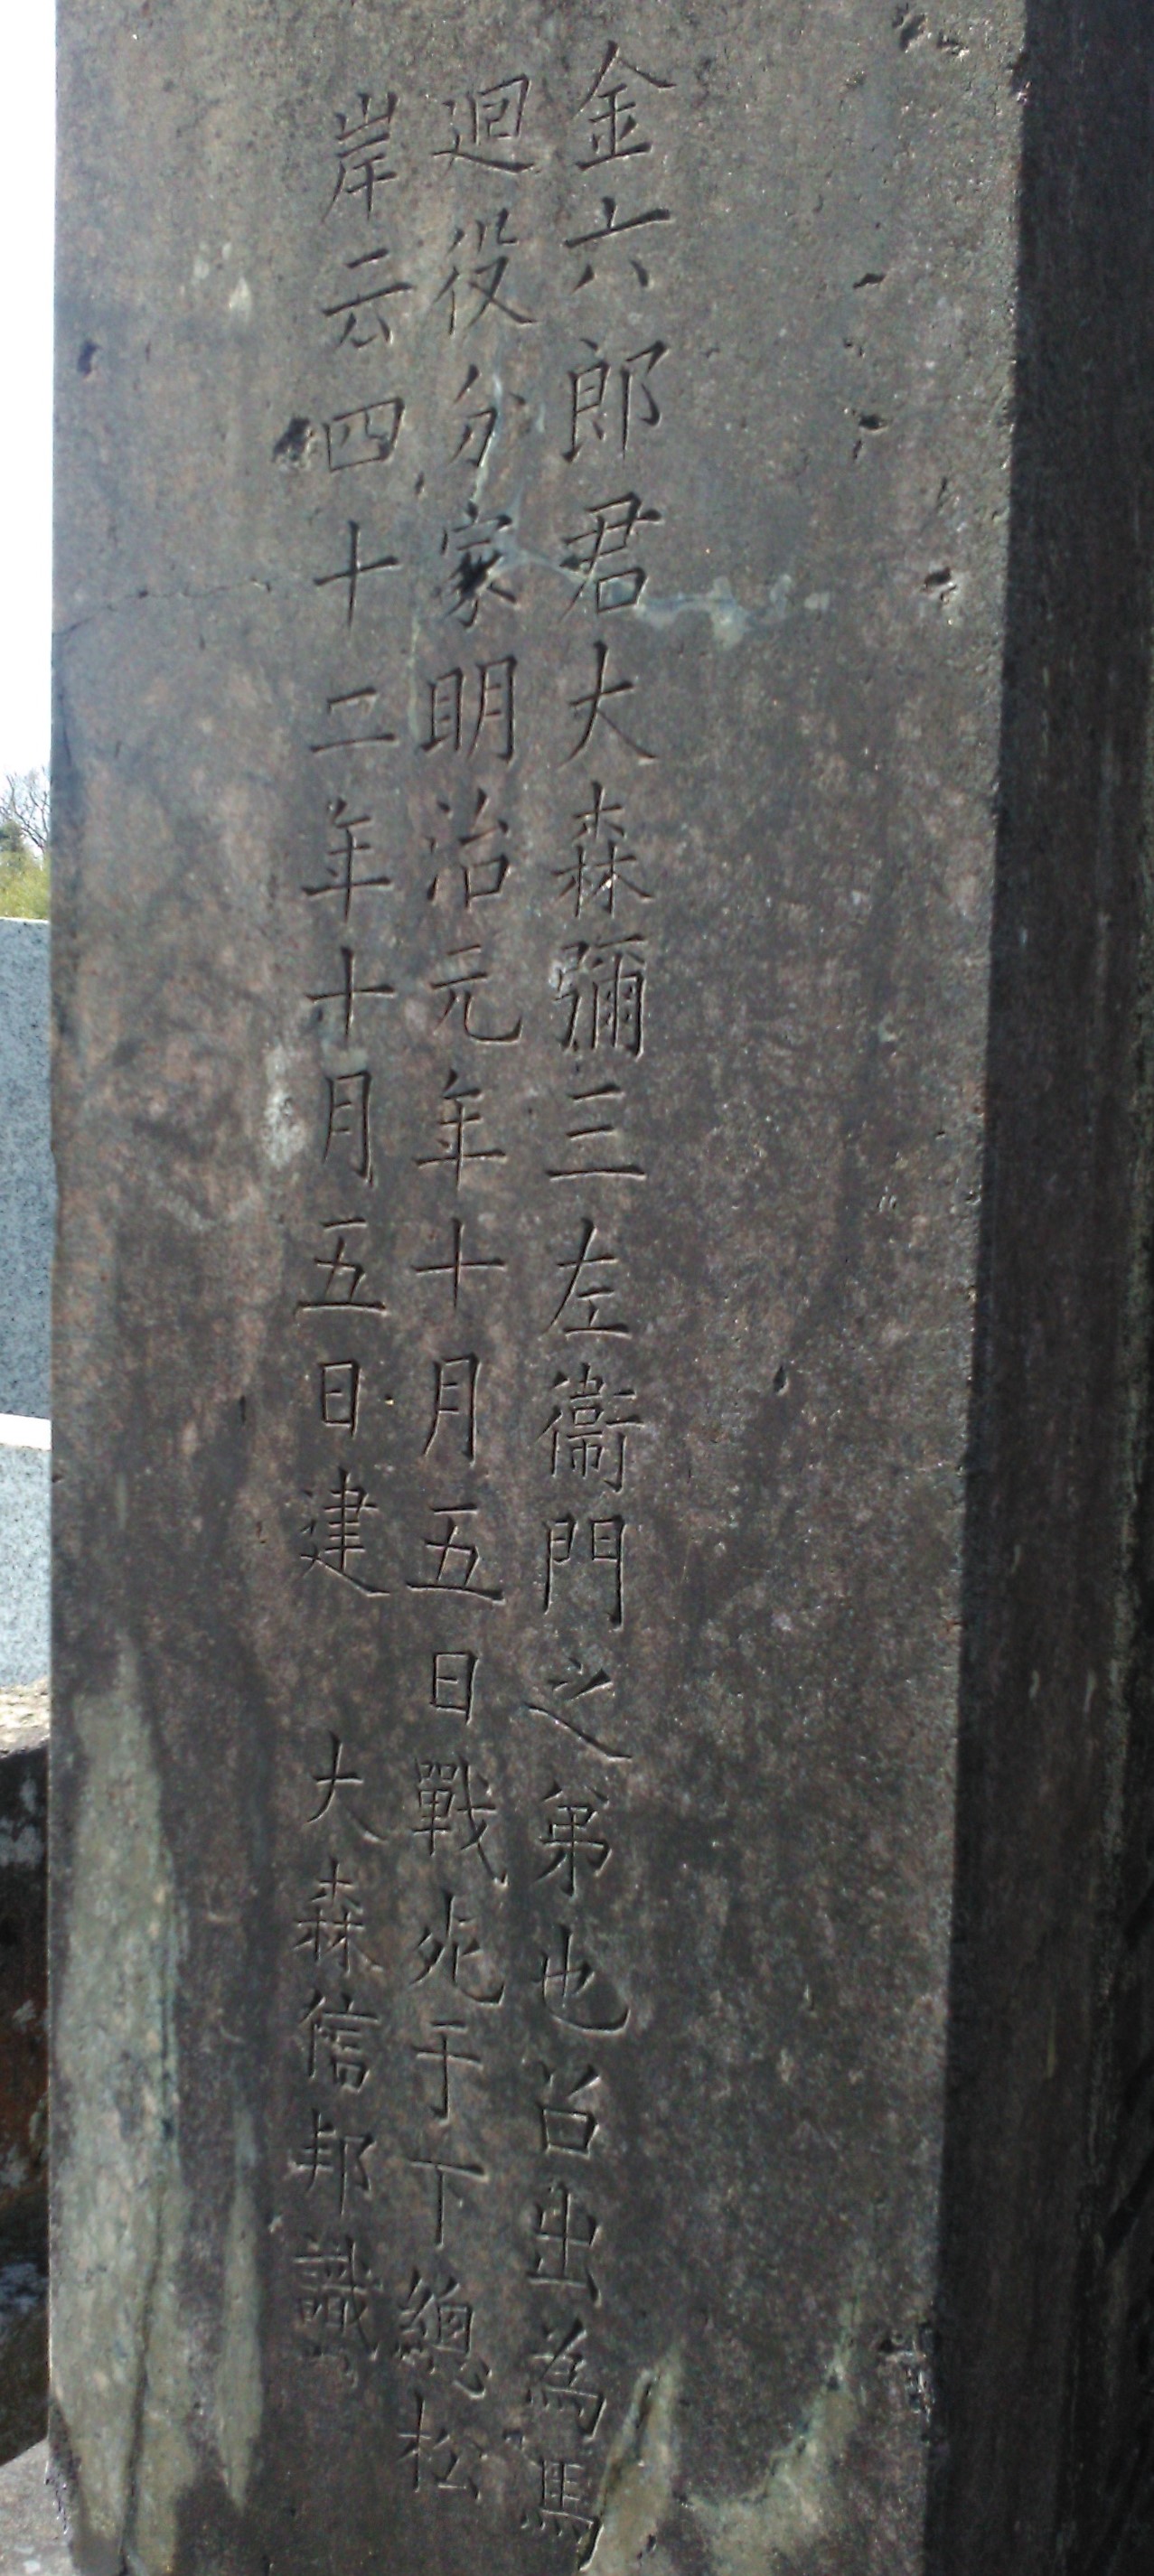 金六郎君大森彌三左衞門之弟也召出為馬
廻役分家明治元年十月五日戰死于下總松
岸云四十二年十月五日建　大森信邦識